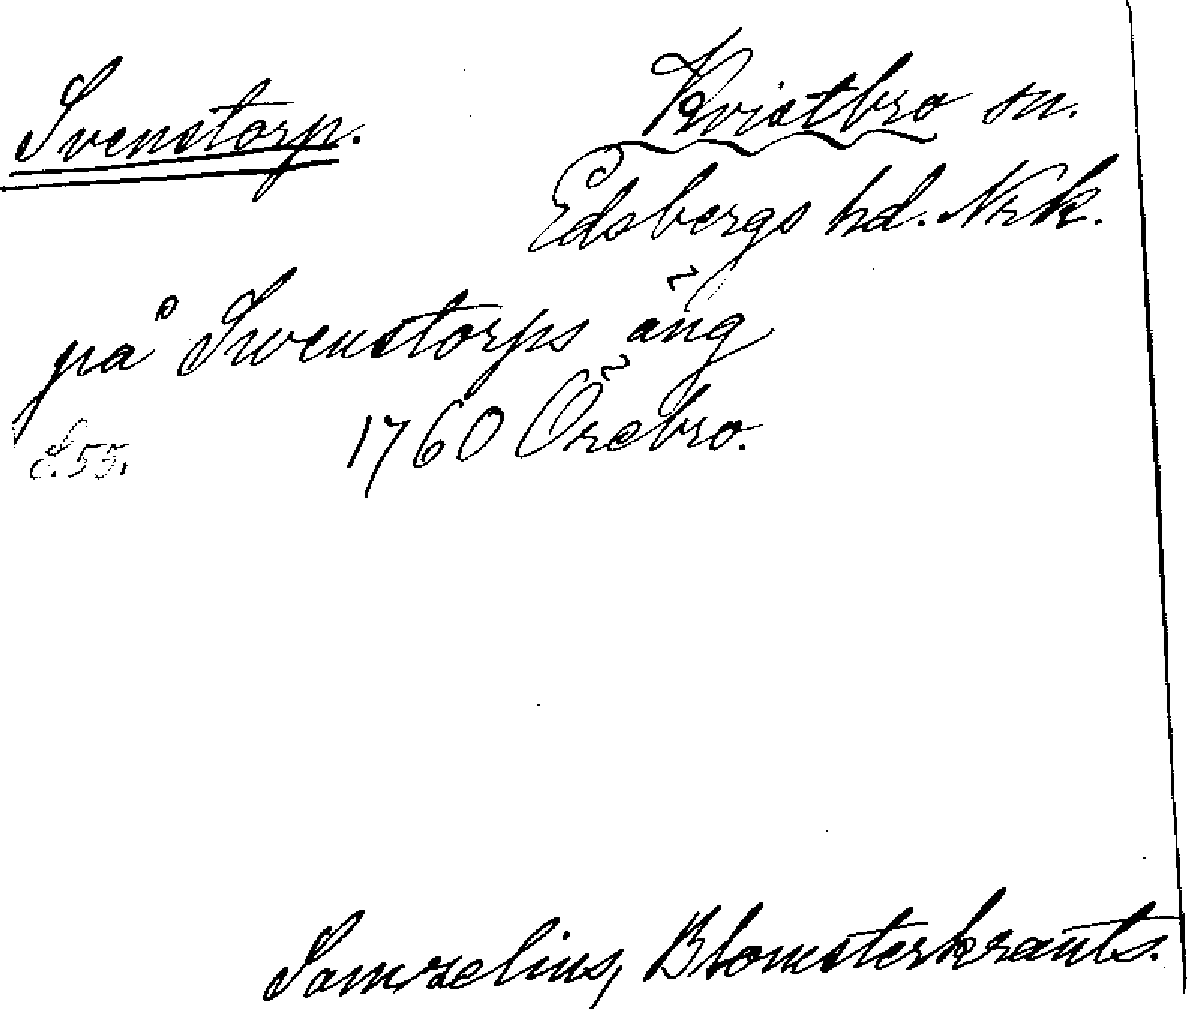 Svenstorp.
Kvistbro sn.
Edsbergs hd. Nrk.
på Swenstorps äng
1760 Örebro.
S. 55.
Samzelius, Blomsterkrants.